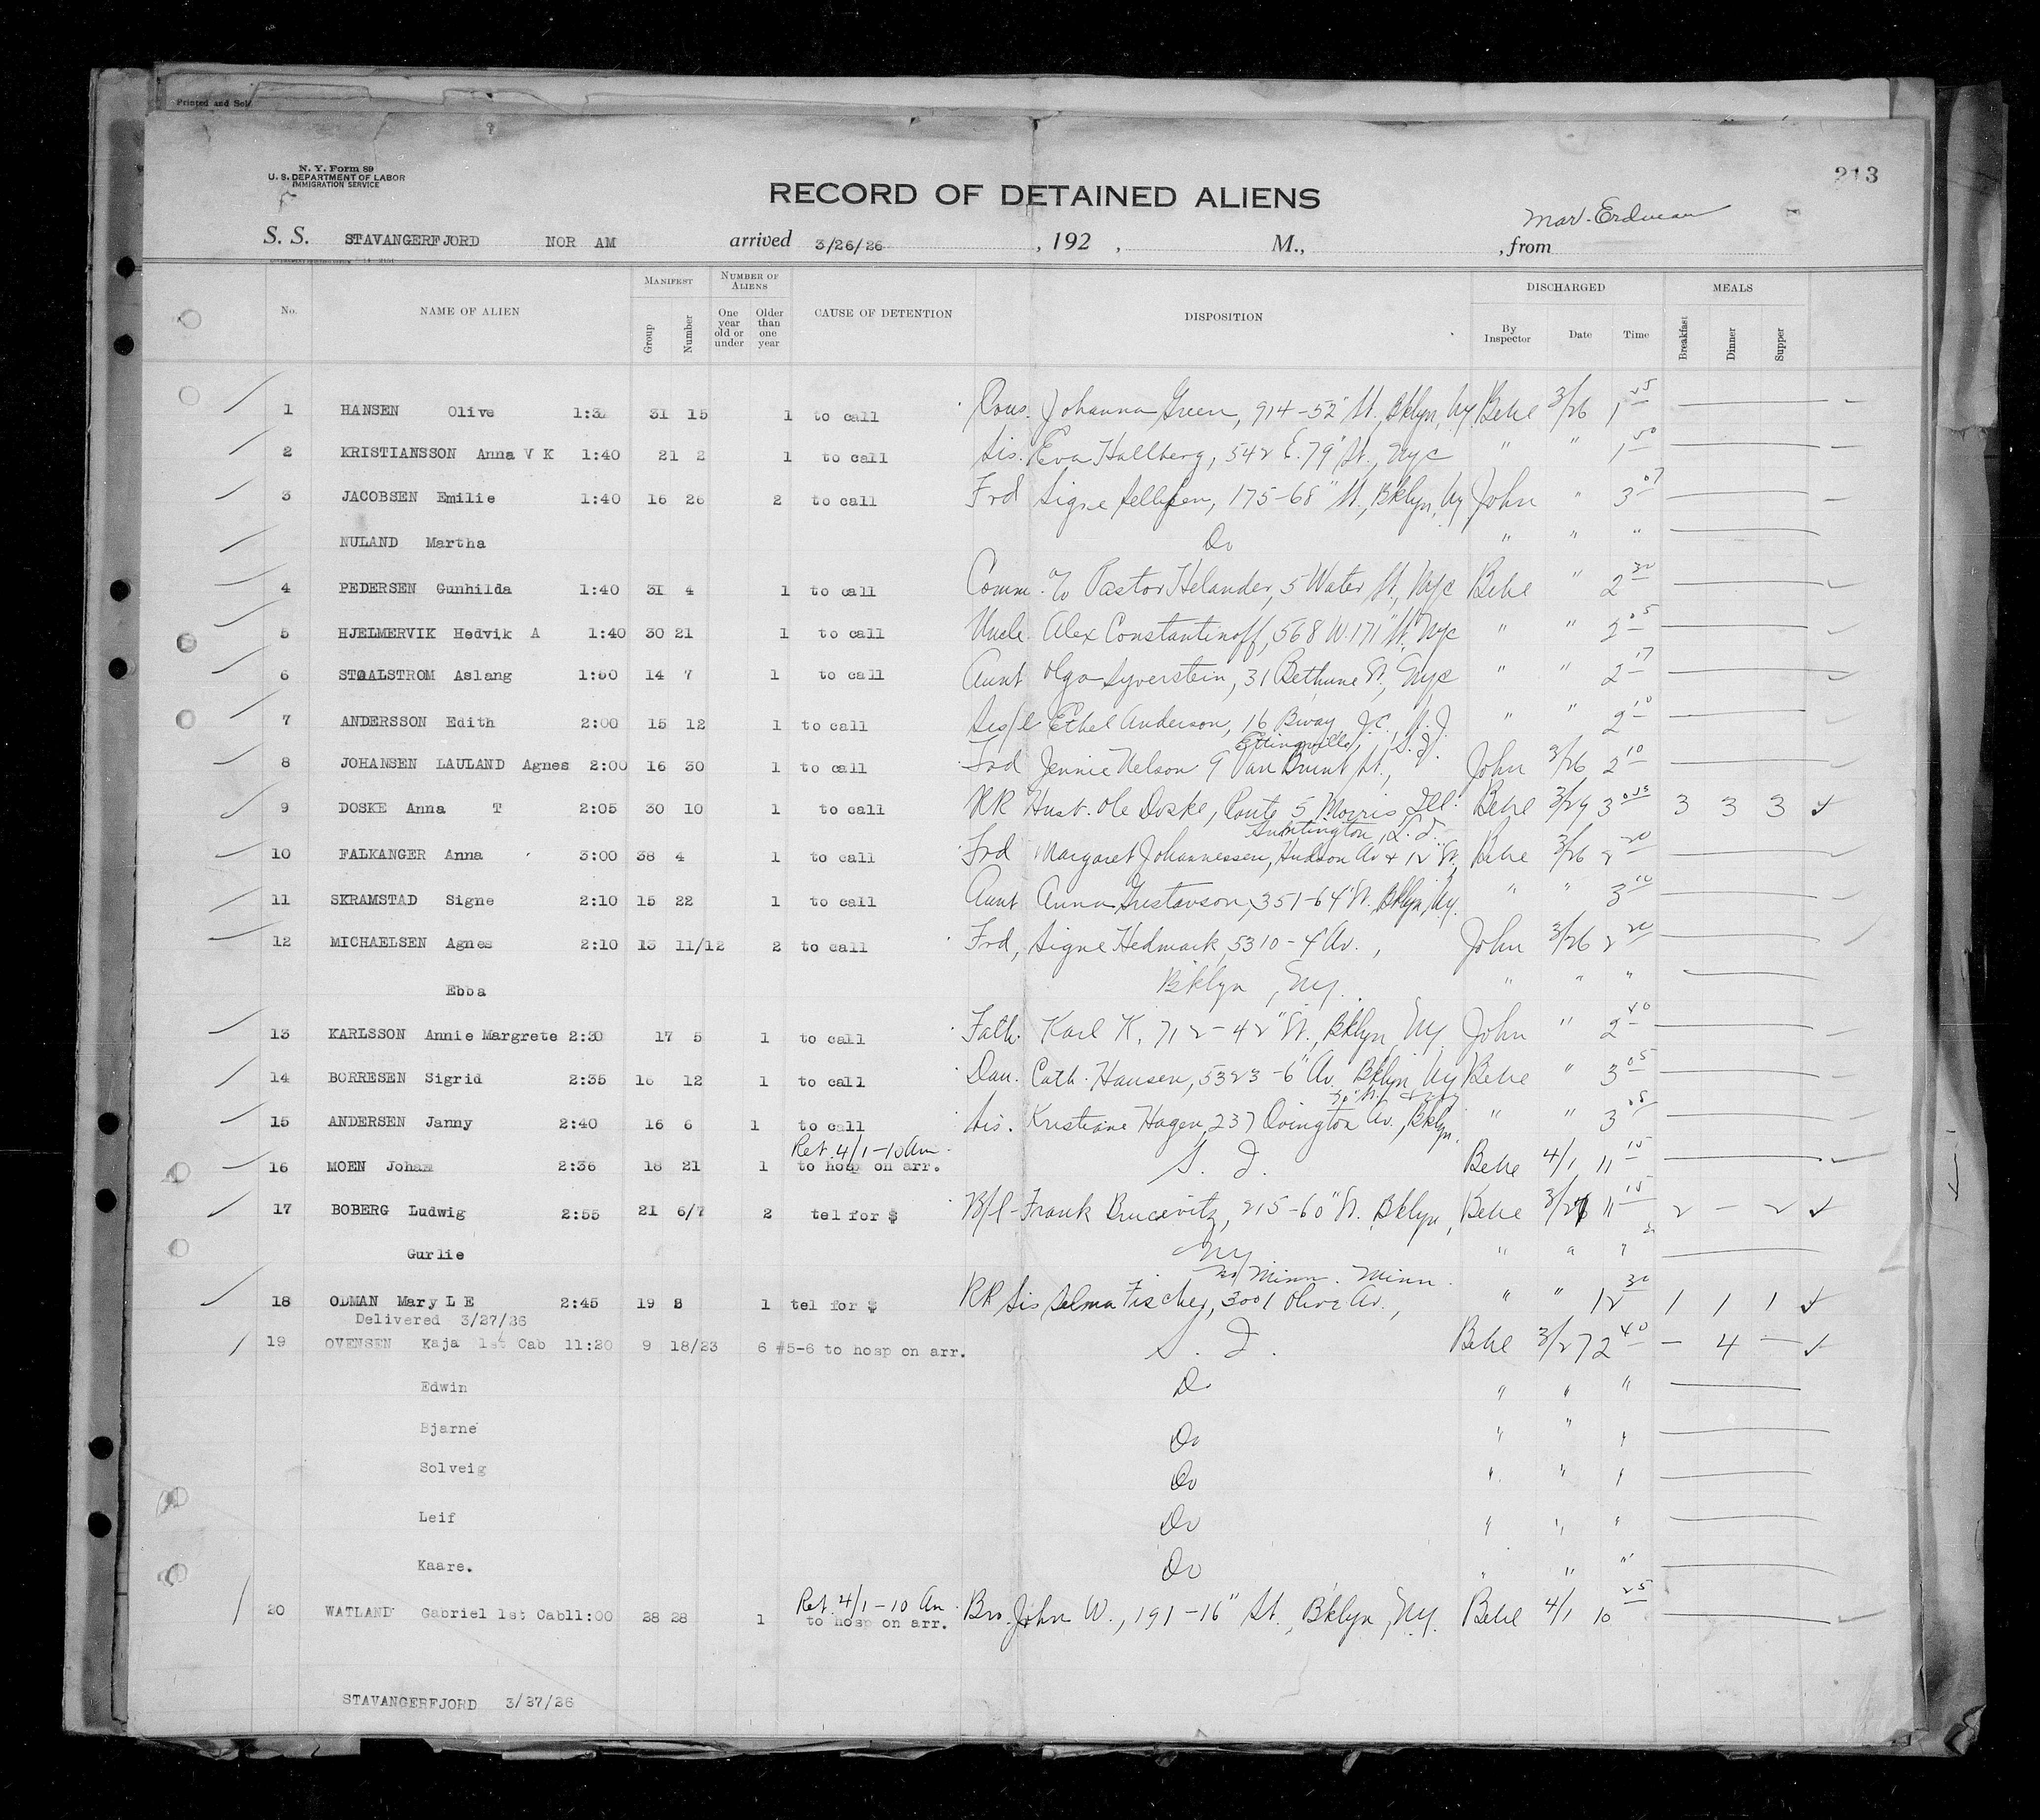 Printed and Sol
N. Y. Form 89
U. S. DEPARTMENT OF LABOR
IMMIGRATION SERVICE
213
RECORD OF DETAINED ALIENS
S. S. STAVANGERFJORD NOR AM arrived 3/26/26, 192 , M., , from
No. NAME OF ALIEN MANIFEST Group Number NUMBER OF ALIENS One year old or under Older than one year CAUSE OF DETENTION DISPOSITION DISCHARGED By Inspector Date Time MEALS Breakfast Dinner Supper
1 HANSEN Olive 31 15 1 to call Johanna Green, 914-52" St., Bklyn, Ny Behe 3/26 1 25
2 KRISTIANSSON Anna V K 1:40 21 2 1 to call Sis. Eva Hallberg, 542 E. 79" St., Nyc " " 1 50
3 JACOBSEN Emilie 1:40 16 26 2 to call Frd Signe 175-68" St., Bklyn, Ny John " 3 07
NULAND Martha Do " " "
4 PEDERSEN Gunhilda 1:40 31 4 1 to call Comm. c/o Pastor Helander, 5 Water St., Nyc Behe " 2 30
5 HJELMERVIK Hedvik A 1:40 30 21 1 to call Uncle Alex Constantinoff, 568 W. 171" St. Nyc " " 2 05
6 STAALSTROM Aslang 14 7 1 to call Aunt Olga Syverstein, 31 Bethune St., Nyc " " 2 17
7 ANDERSSON Edith 2:00 15 12 1 to call Sis/l Ethel Anderson, 16 Bway, J.C. N.J. " " 2 10
Ettingville, S.I.
8 JOHANSEN LAULAND Agnes 2:00 16 30 1 to call Frd Jennie Nelson 9 Van Brunt St., John 3/26 2 10
9 DOSKE Anna T 2:05 30 10 1 to call RR Husb. Ole Doske, Route 5 Morris, Ill. Behe 3/29 3 3 3 3
Huntington, L.I.
10 FALKANGER Anna 3:00 38 4 1 to call Frd Margaret Johannessen, Hudson Av & 12" St. Behe 3/26 2 20
11 SKRAMSTAD Signe 2:10 15 22 1 to call Aunt Anna Gustavson, 351-64" St. Bklyn, Ny. " " 3 10
12 MICHAELSEN Agnes 2:10 13 11/12 2 to call Frd, Signe Hedmark, 5310-4" Av., John 3/26 2 20
Ebba Bklyn, Ny. " " "
13 KARLSSON Annie Margrete 2:30 17 5 1 to call Fath. Karl K, 712-42" St., Bklyn, Ny John " 2 40
14 BORRESEN Sigrid 2:35 16 12 1 to call Dau. Cath. Hansen, 5323-6" Av. Bklyn, Ny Behe " 3 05
15 ANDERSEN Janny 2:40 16 6 1 to call Sis. Kristiane Hagen, 237 Ovington Av., Bklyn. " " 3 05
Ret. 4/1-10 Am.
16 MOEN Johan 2:36 18 21 1 to hosp on arr. S. I. Behe 4/1 11 15
17 BOBERG Ludwig 2:55 21 6/7 2 tel for $ B/l-Frank 215-60" St. Bklyn, Behe 11 15 2 - 2
Gurlie Ny " " "
Minn. Minn.
18 ODMAN Mary L E 2:45 19 8 1 tel for $ RR Sis Selma Fischer, 3001 Olive Av., " " 12 30 1 1 1
Delivered 3/27/26
19 OVENSEN Kaja 1st Cab 11:20 9 18/23 6 #5-6 to hosp on arr. S. I. Behe 3/27 2 40 - 4 -
Edwin Do " " "
Bjarne Do " " "
Solveig Do " " "
Leif Do " " "
Kaare. Do " " "
Ret. 4/1-10 Am.
20 WATLAND Gabriel 1st Cab11:00 28 28 1 to hosp on arr. Bro. John W., 191-16" St., Bklyn, Ny. Behe 4/1 10 25
STAVANGERFJORD 3/27/26